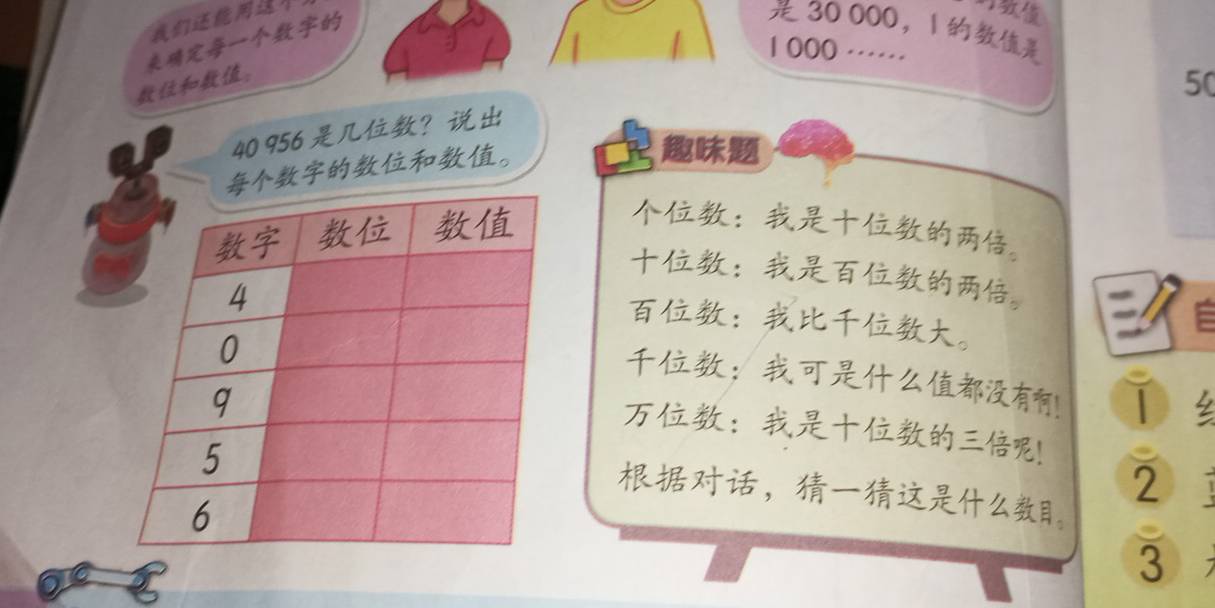 我们还能用这个
来确定每一个数字的
数位和数值。
的数值
是 30 000，1 的数值是
1 000 ……
50
40 956 是几位数？说出
每个数字的数位和数值。
数字 数位 数值
4
0
9
5
6
趣味题
个位数：我是十位数的两倍。
十位数：我是百位数的两倍。
百位数：我比千位数大。
千位数：我可是什么值都没有啊！
万位数：我是十位数的三倍呢！
根据对话，猜一猜这是什么数目。
自
1
2
3